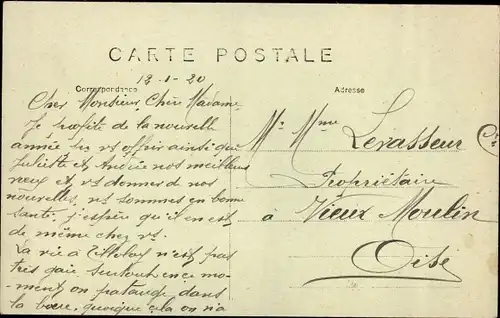 CARTE POSTALE
Correspondance
Adresse
12-1-20
Cher Monsieur, Chère Madame
Je profite de la nouvelle
année pr vs offrir ainsi que
Juliette et Andrée nos meilleurs
vœux et vs donner de nos
nouvelles, ns sommes en bonne
santé, j'espère qu'il en est
de même chez vs.
La vie à n'est pas
très gaie surtout en ce mo-
ment on patauge dans
la boue, quoique cela on n'a
Mr Mme
Levasseur
Propriétaire
à Vieux Moulin
Oise